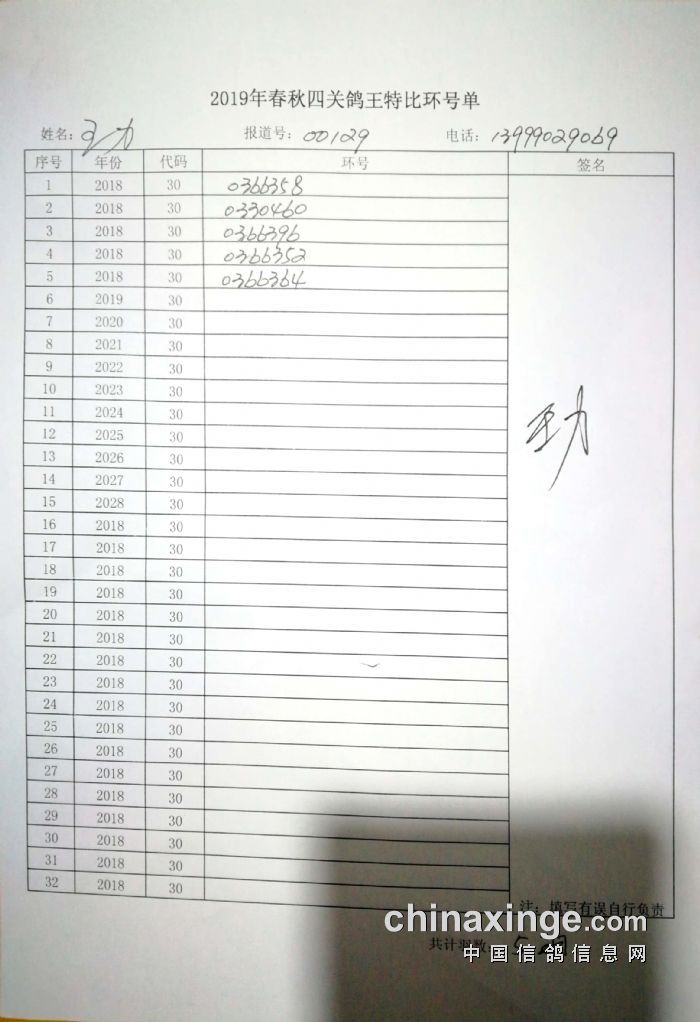 2019年春秋四关鸽王特比环号单
姓名: 王力 报道号: 00129 电话: 13999029069
序号 年份 代码 环号 签名
1 2018 30 0366358
2 2018 30 0330460
3 2018 30 0366396
4 2018 30 0366352
5 2018 30 0366364
6 2019 30
7 2020 30
8 2021 30
9 2022 30
10 2023 30
11 2024 30
12 2025 30 王力
13 2026 30
14 2027 30
15 2028 30
16 2018 30
17 2018 30
18 2018 30
19 2018 30
20 2018 30
21 2018 30
22 2018 30
23 2018 30
24 2018 30
25 2018 30
26 2018 30
27 2018 30
28 2018 30
29 2018 30
30 2018 30
31 2018 30
32 2018 30
注: 填写有误自行负责
chinaxinge.com
共计羽数: 5羽
中国信鸽信息网